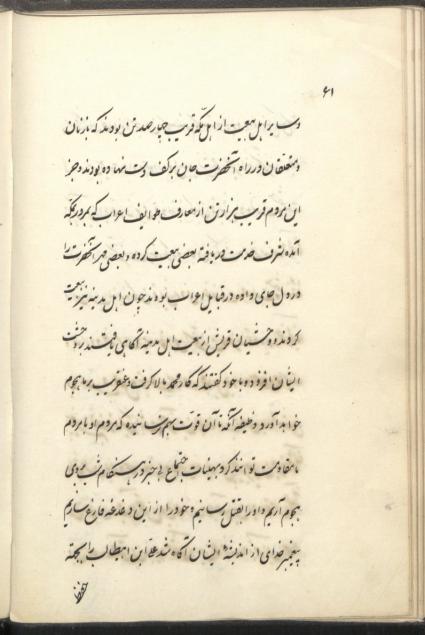 ۶۱
و سایر اهل بیعت از اهل مکّه قریب چهار صد تن بودند که با زنان
و متعلقان در راه آنحضرت جان بر کف دست نهاده بودند و جز
این مردم قریب هزار تن از معارف طوایف اعراب که بمرور بمکّه
آمده شرف خدمت دریافته بعضی بیعت کرده و بعضی مهر آنحضرت را
در دل جای داده در قبایل اعراب بودند چون اهل مدینه نیز بیعت
کردند و وحشیان قریش از بیعت اهل مدینه آگاهی یافتند بر وحشت
ایشان افزوده با خود گفتند که کار محمد بالا گرفت و عنقریب بر ما هجوم
خواهد آورد وظیفه آنکه تا آن قوت بهم نرسانیده که مردم او با مردم
ما مقاومت توانند کرد بهیئات اجتماع بی خبر در هنگام شب بر وی
هجوم آریم و او را بقتل رسانیم و خود را از این دغدغه فارغ سازیم
پیغمبر خدای از اندیشهٔ ایشان آگاه شد علّی ابن ابیطالب را بجهته
حفظ